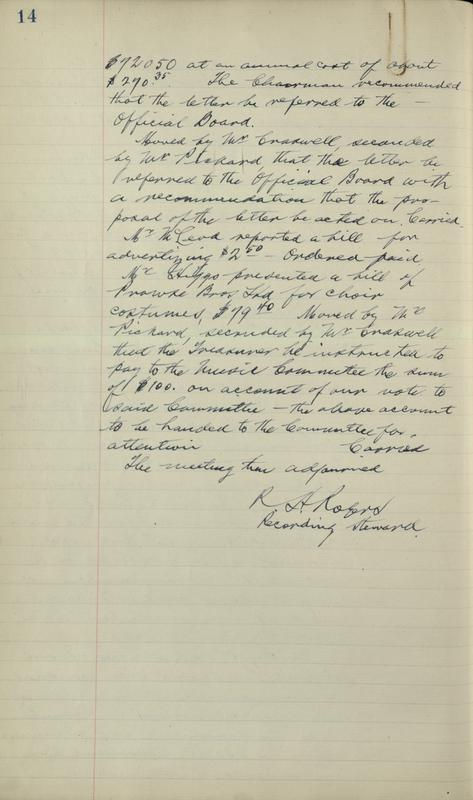 14
$72050 at an annual cost of about
$290.35 The Chairman recommended
that the letter be referred to the —
Official Board.
Moved by Mr Craswell, seconded
by Mr Pickard that the letter be
referred to the Official Board with
a recommendation that the pro-
posal of the letter be acted on. Carried
Mr McLeod reported a bill for
advertizing $2.50 — Ordered paid
Mr Higgs presented a bill of
Prowse Bros Ltd for choir
costumes, $79.40 Moved by Mr
Pickard, seconded by Mr Craswell
that the Treasurer be instructed to
pay to the Music Committee the sum
of $100. on account of our vote to
said Committee — the above account
to be handed to the Committee for
attention Carried
The meeting then adjourned
R. H. Rogers
Recording Steward.